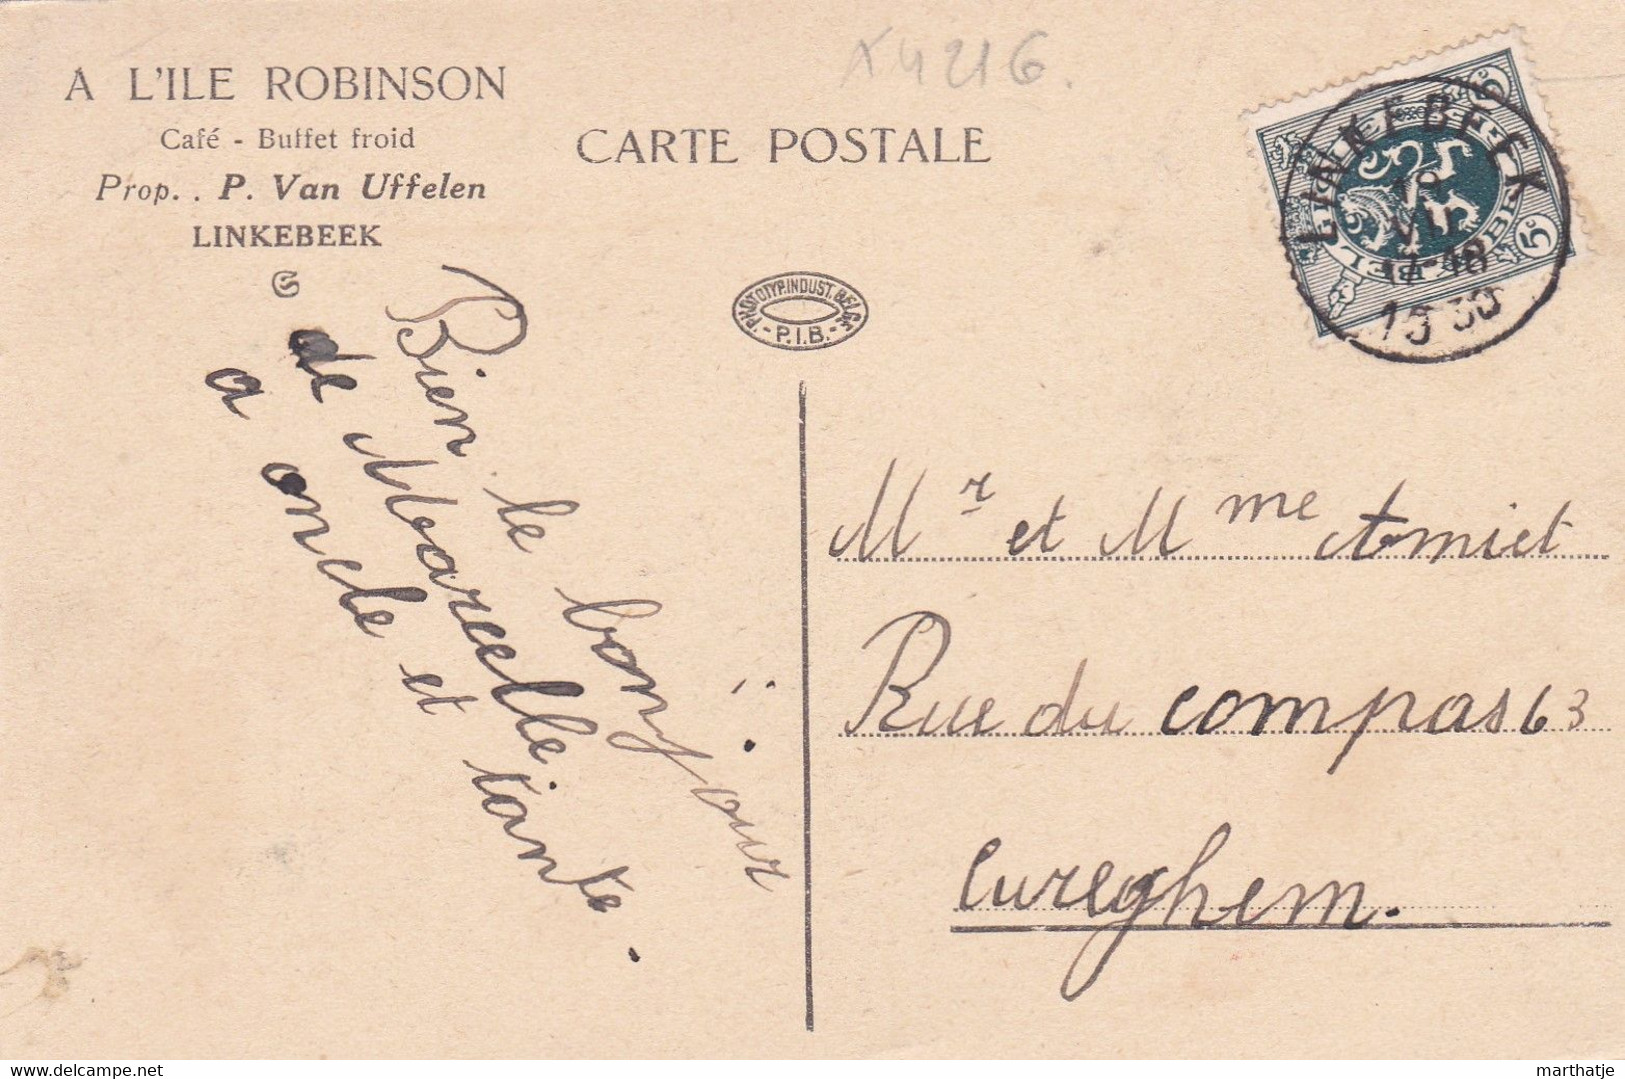 A L'ILE ROBINSON
Café - Buffet froid
Prop. . P. Van Uffelen
LINKEBEEK
CARTE POSTALE
x4216.
PHOTOTYP. INDUST. BELGE
- P.I.B. -
LINKEBEEK
VII
17-18
1930
5c
Bien le bonjour
de Marcelle
a oncle et tante.
Mr et Mme Amiet
Rue du compas 63
Cureghem.
marthatje